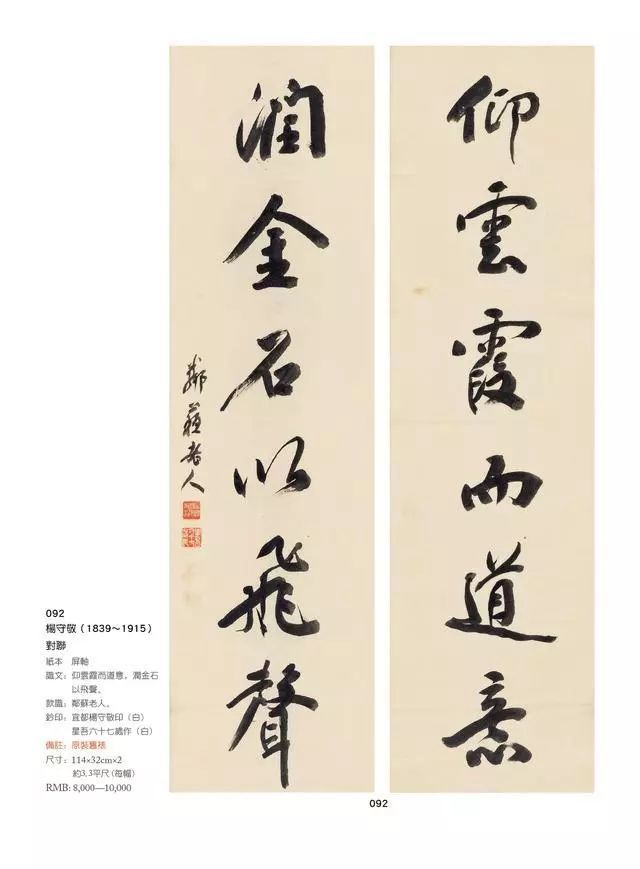 仰雲霞而道意
潤金石以飛聲
鄰蘇老人
092
楊守敬（1839～1915）
對聯
紙本　屏軸
識文：仰雲霞而道意，潤金石
以飛聲。
款識：鄰蘇老人。
鈐印：宜都楊守敬印（白）
星吾六十七歲作（白）
備註：原裝舊裱
尺寸：114×32cm×2
約3.3平尺（每幅）
RMB: 8,000—10,000
092